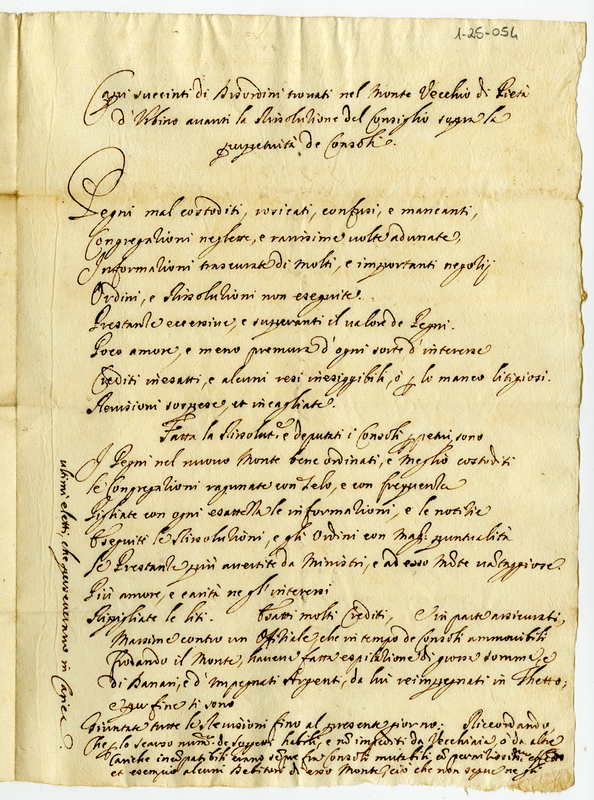 1-25-054
Capi succinti di Disordini trovati nel Monte Vecchio di Pietà
d'Urbino avanti la Rissolutione del Consiglio sopra la
perpetuità de Consoli.
Pegni mal costoditi, rosicati, confusi, e mancanti,
Congregationi neglette, e rarissime volte adunate,
Informationi trascurate di molti, e importanti negotij
Ordini, e Rissolutioni non eseguite.
Prestanze eccessive, e superanti il valore de Pegni.
Poco amore, e meno premura d'ogni sorte d'interesse
Crediti inesatti, e alcuni resi inesiggibili, ò p lo manco litigiosi.
Revisioni sospese, et incagliate.
Fatta la Rissolut.e, e deputati i Consoli ppetui, sono
I Pegni nel nuovo Monte bene ordinati, e meglio costoditi
le Congregationi ragunate con Zelo, e con frequenza
Pigliate con ogni esattezza le informationi, e le notitie
Eseguiti le Rissolutioni, e gli Ordini con Mag.r puntualità
le Prestanze più avertite da Ministri, e ad esso Monte vantaggiose.
Più amore, e carità ne gl'interessi
Ripigliate le liti. Esatti molti Crediti, e in parte assicurati,
Massime contro un Offitiale, che in tempo de Consoli ammovibili
frodando il Monte, haveva fatta espilatione di grosse somme, e
di Danari, e d'Impegnati Argenti, da lui reimpegnati in Ghetto;
e per fine si sono
Giuntate tutte le Revisioni fino al presente giorno; Riccordando,
Che p lo scarso num.o de soggetti habili, e nõ impediti da Vecchiaia, ò da altre
Cariche incõpatibili erano sempre i Consoli mutabili, cõ
et esempio alcuni Debitori di esso Monte, ciò che non segue ne gli
ultimi eletti, che perseverano in Carica.